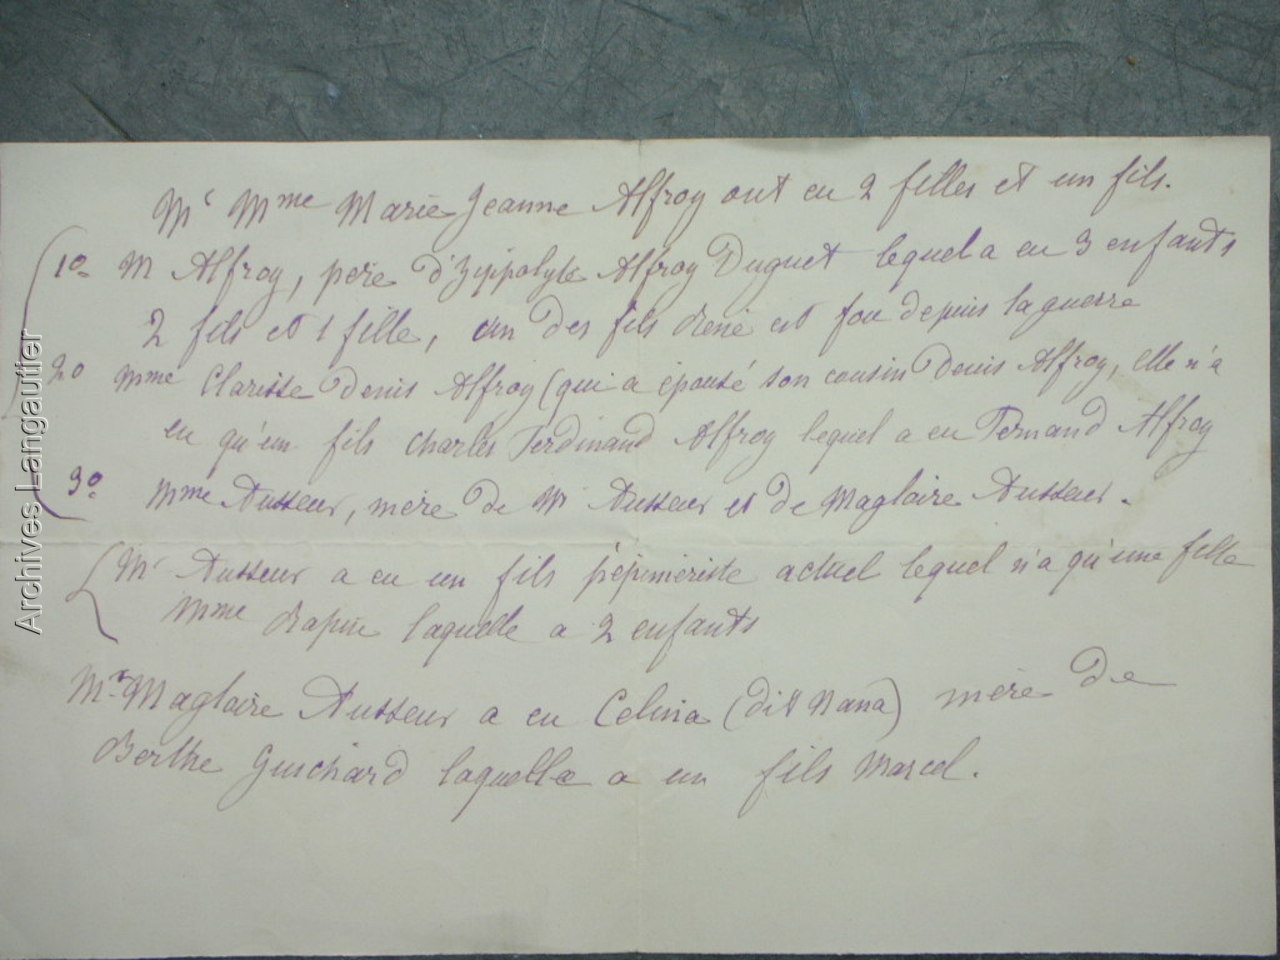 Mr Mme Marie Jeanne Alfroy ont eu 2 filles et un fils.
1o M Alfroy, père d'Hyppolyte Alfroy Duguet lequel a eu 3 enfants
2 fils et 1 fille, un des fils René est fou depuis la guerre
2o Mme Clarisse Denis Alfroy (qui a épousé son cousin Denis Alfroy, elle n'a
eu qu'un fils Charles Ferdinand Alfroy lequel a eu Fernand Alfroy
3o Mme Ausseur, mère de Mr Ausseur et de Magloire Ausseur.
Mr Ausseur a eu un fils pépinieriste actuel lequel n'a qu'une fille
Mme laquelle a 2 enfants
Mr Magloire Ausseur a eu Celina (dit Nana) mère de
Berthe Guichard laquelle a un fils Marcel.
Archives Langautier